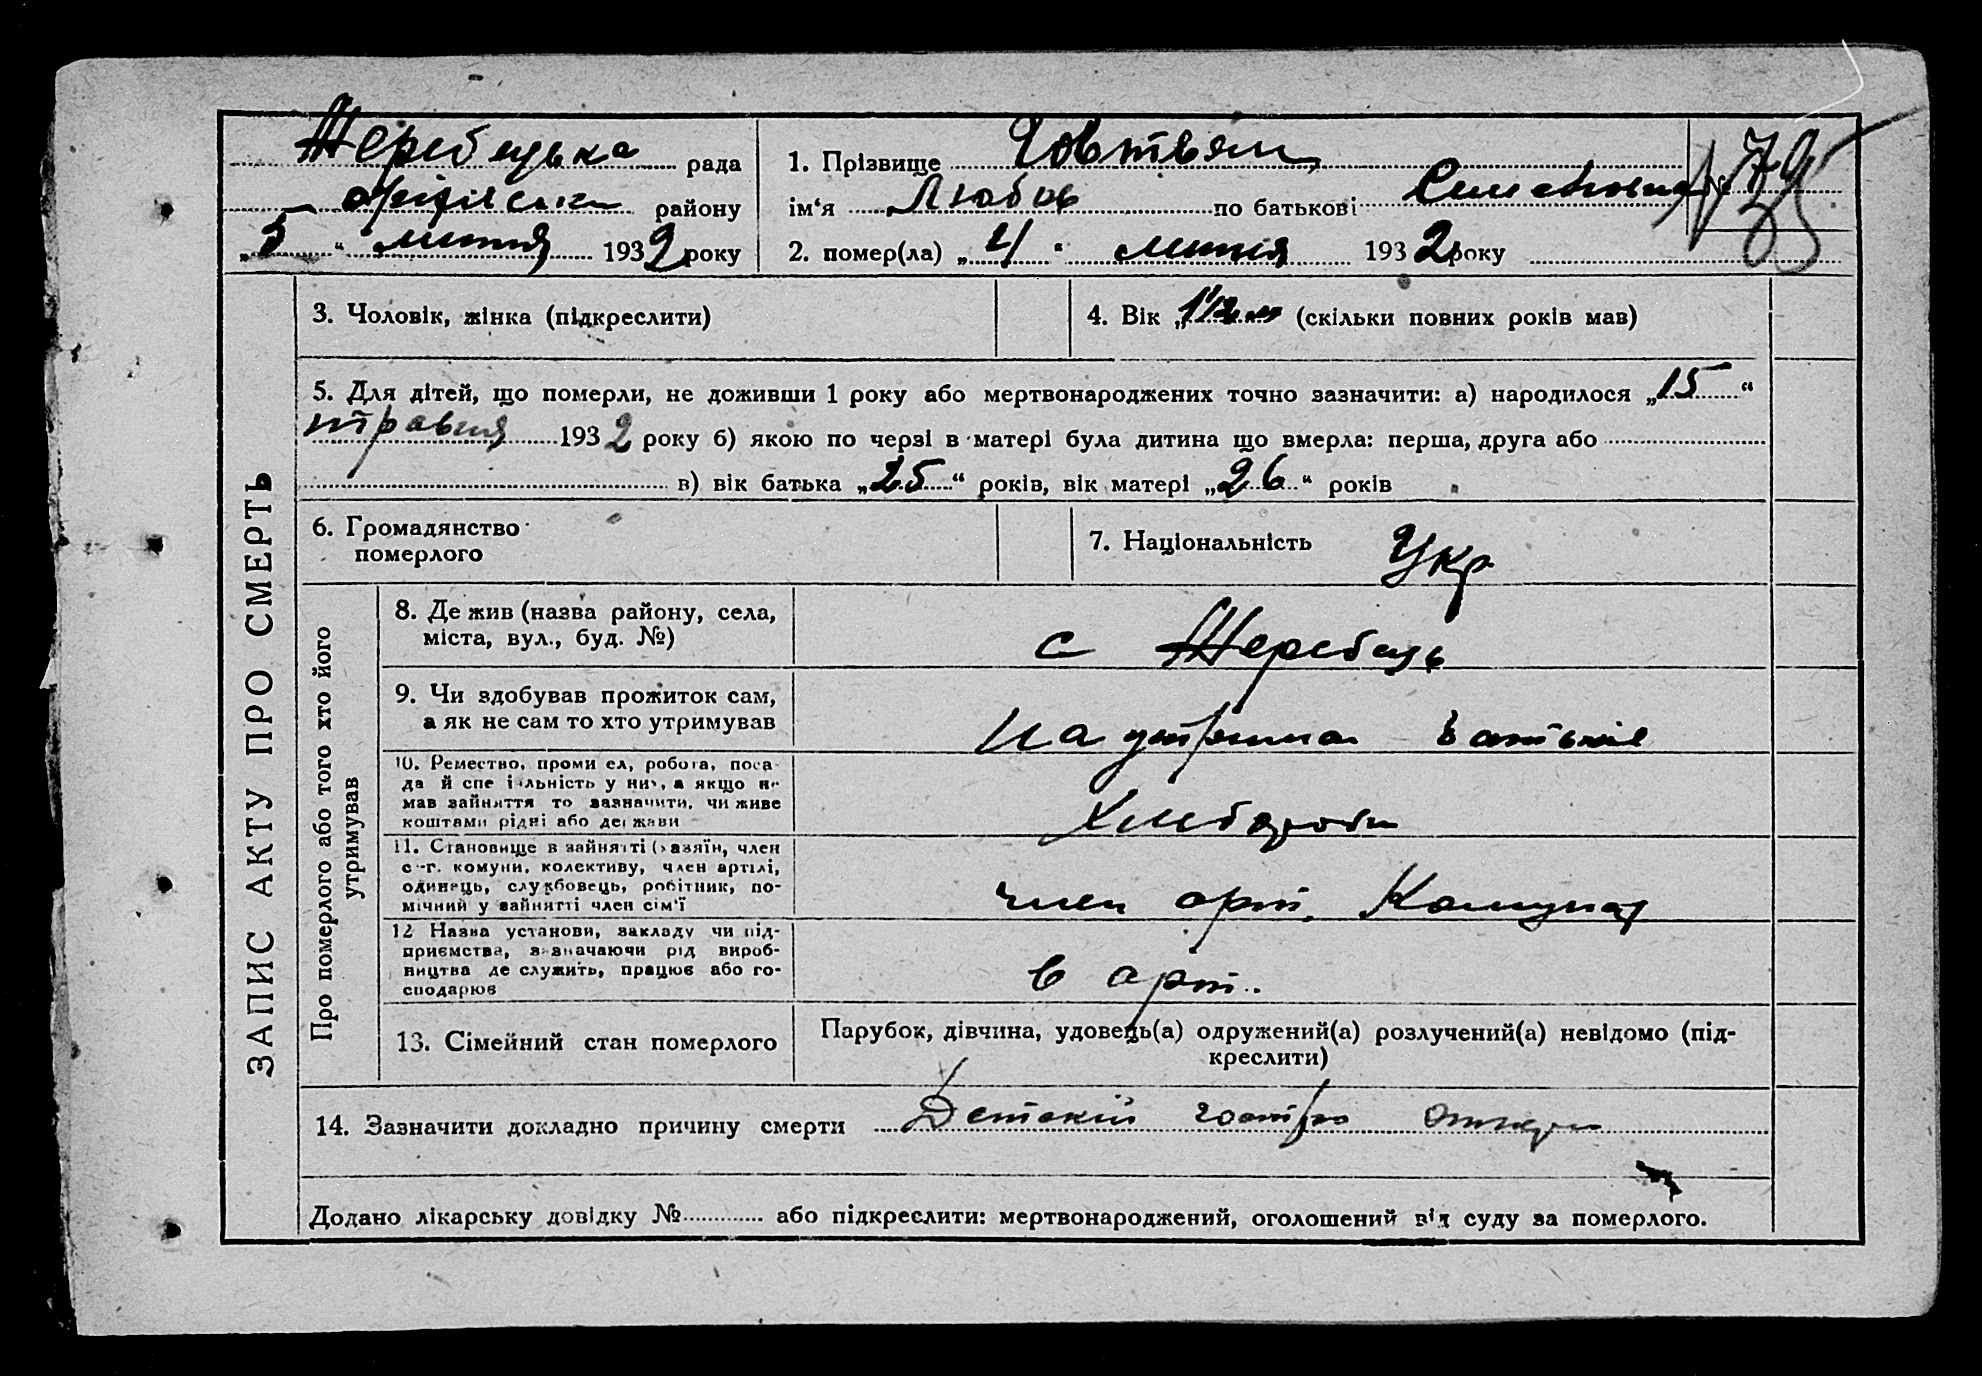 Жеребецька рада
Оріхівськ району
„5“ липня 1932 року
1. Прізвище Човтвян
ім‘я Любов по батькові Семеновна
2. помер(ла) „4“ липня 1932 року
№ 79
ЗАПИС АКТУ ПРО СМЕРТЬ
3. Чоловік, жінка (підкреслити)
4. Вік „ (скільки повних років мав)
5. Для дітей, що померли, не доживши 1 року або мертвонароджених точно зазначити: а) народилося „15“
травня 1932 року б) якою по черзі в матері була дитина що вмерла: перша, друга або
в) вік батька „25“ років, вік матері „26“ років
6. Громадянство
померлого
7. Національність Укр
Про померлого або того хто його
утримував
8. Де жив (назва району, села,
міста, вул., буд. №)
с Жеребець
9. Чи здобував прожиток сам,
а як не сам то хто утримував
На утриман батьків
10. Ремество, промисел, робота, поса-
да й спеціальність у них, а якщо не
мав зайняття то зазначити, чи живе
коштами рідні або держави
Хлебороб
11. Становище в зайнятті (хазяїн, член
с.-г. комуни, колективу, член артілі,
одинець, службовець, робітник, по-
мічний у зайнятті член сім'ї
член арт. Комунар
12 Назва установи, закладу чи під-
приємства, зазначаючи рід вироб-
ництва де служить, працює або го-
сподарює
в арт.
13. Сімейний стан померлого
Парубок, дівчина, удовець(а) одружений(а) розлучений(а) невідомо (під-
креслити)
14. Зазначити докладно причину смерти Детский гастро энтери
Додано лікарську довідку № або підкреслити: мертвонароджений, оголошений від суду за померлого.